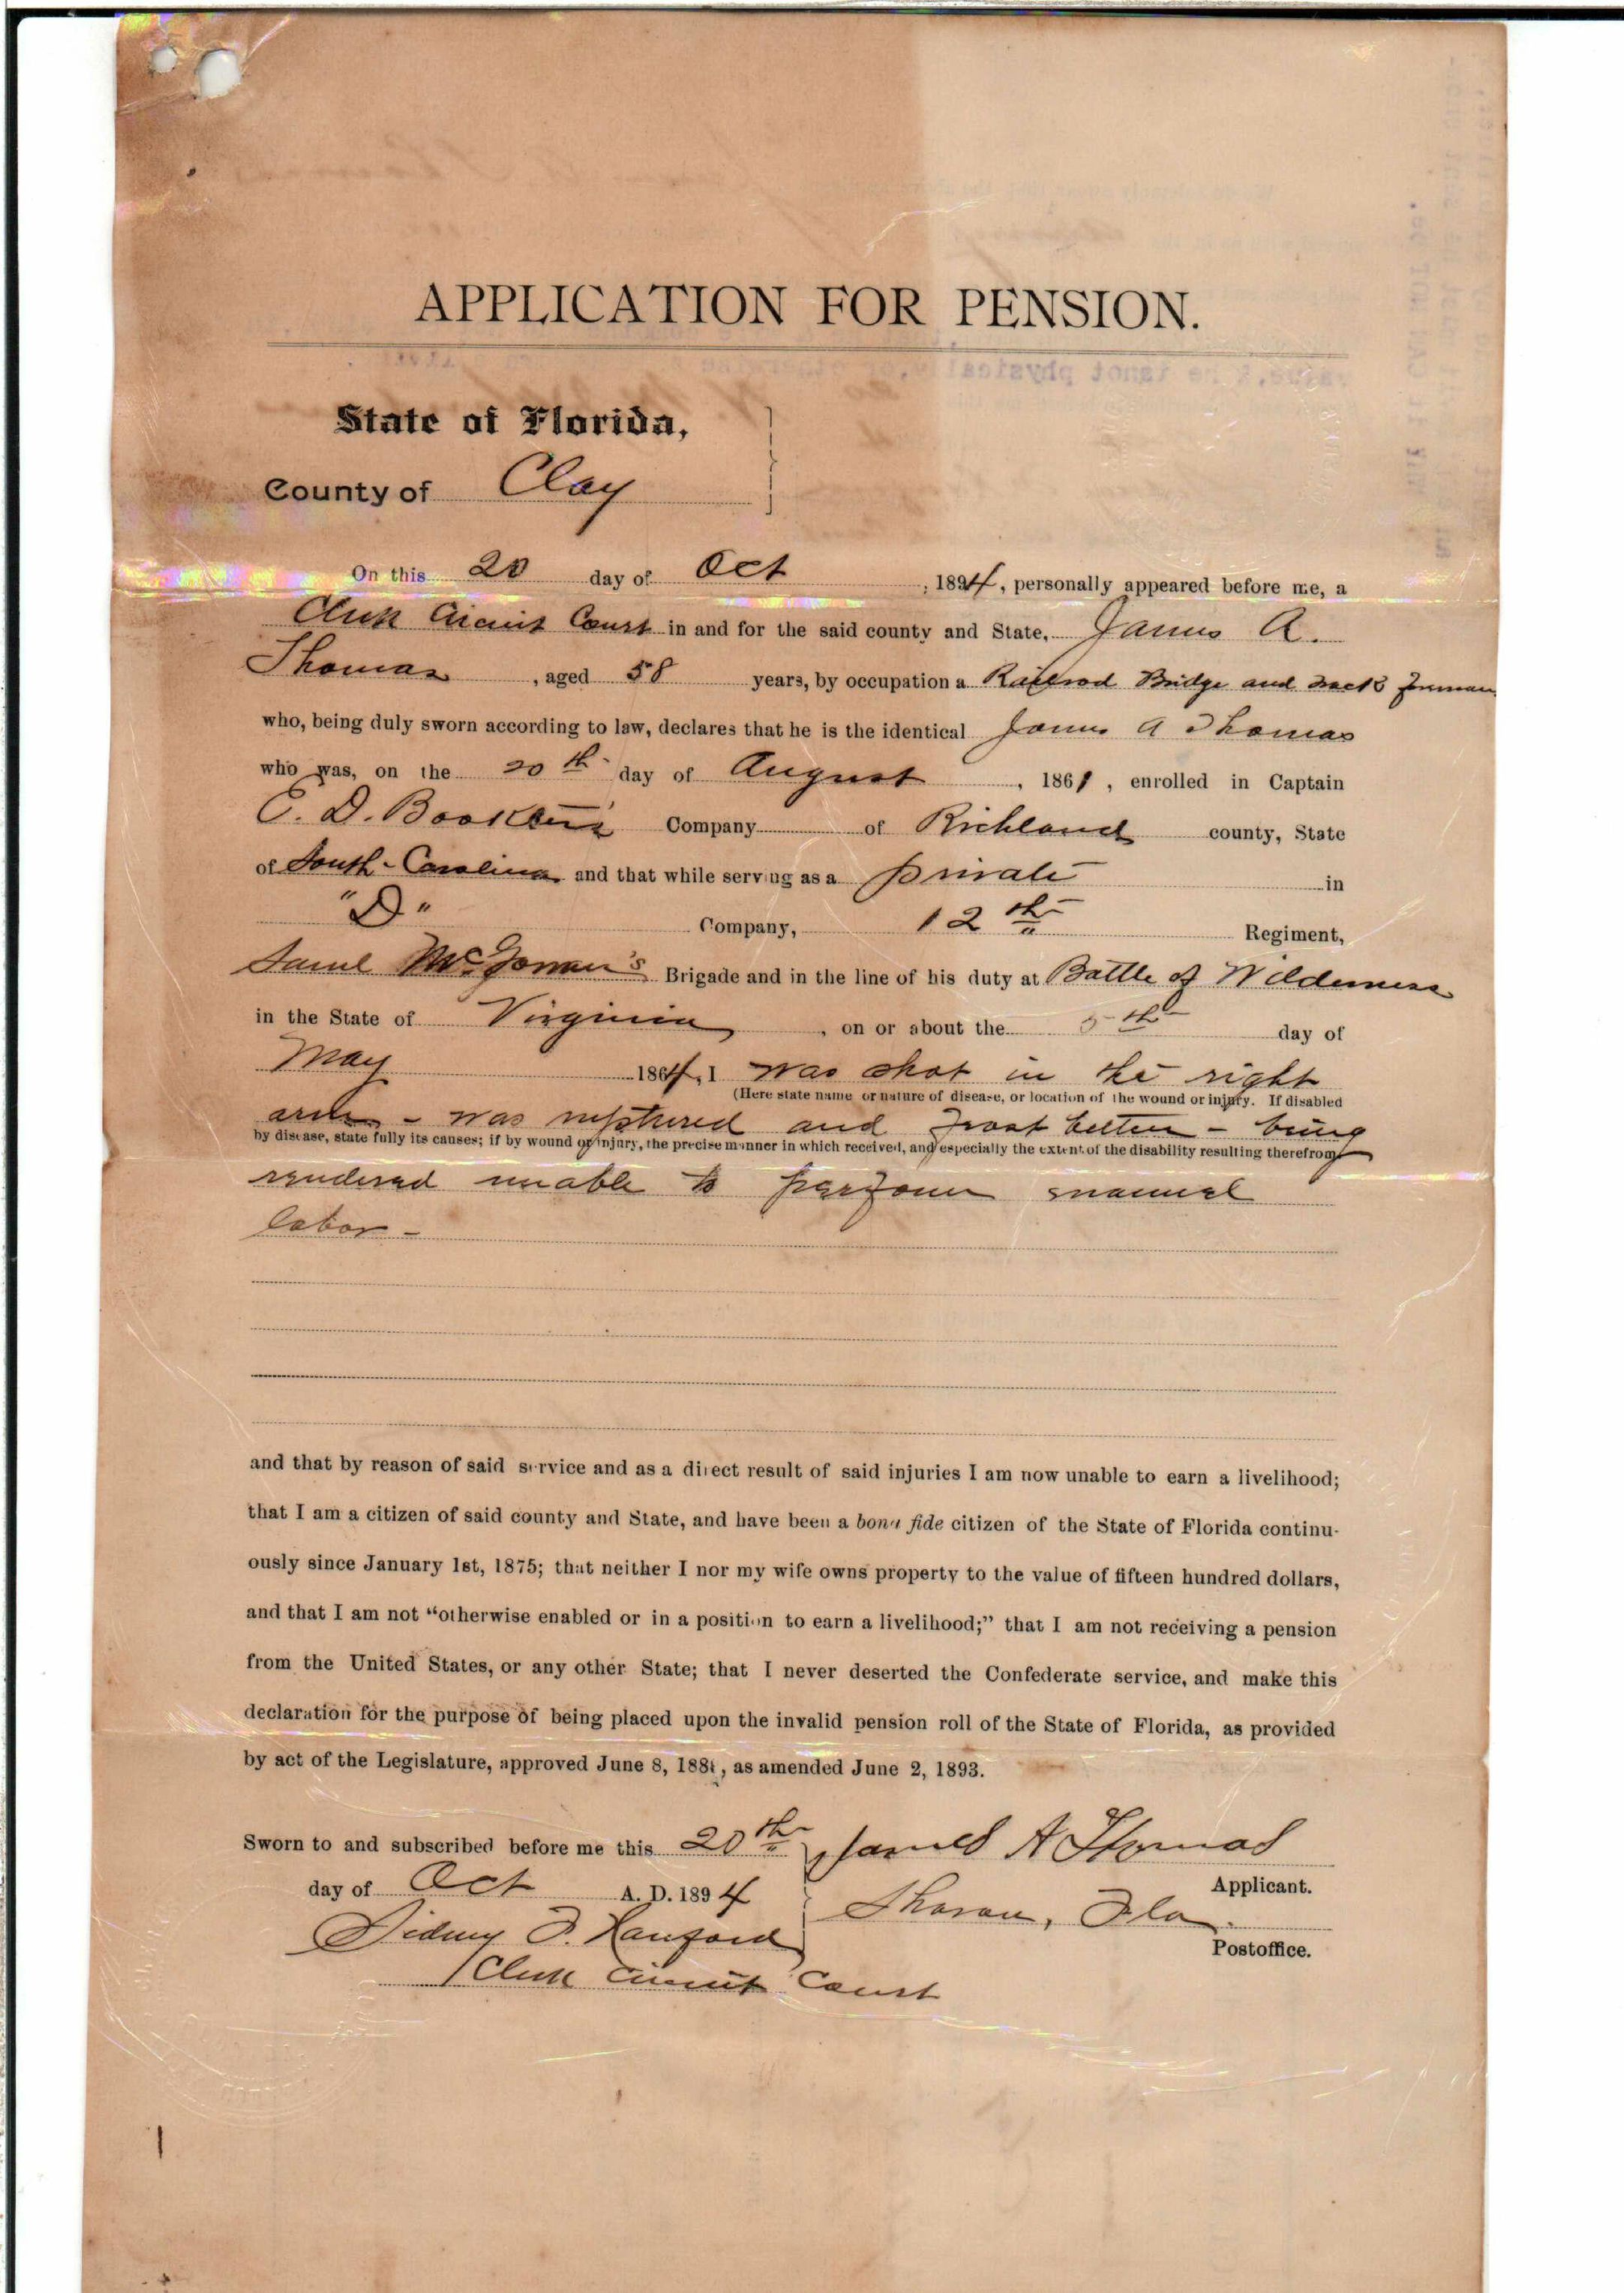 APPLICATION FOR PENSION.
State of Florida,
County of Clay
On this 20 day of Oct, 1894, personally appeared before me, a
Clerk Circuit Court in and for the said county and State, James A.
Thomas, aged 58 years, by occupation a Railroad Bridge and track foreman
who, being duly sworn according to law, declares that he is the identical James A Thomas
who was, on the 20th day of August, 1861, enrolled in Captain
E. D. Booker's Company of Richland county, State
of South-Carolina and that while serving as a private in
"D" Company, 12th Regiment,
Saml McGowan's Brigade and in the line of his duty at Battle of Wilderness
in the State of Virginia, on or about the 5th day of
May 1864, I was shot in the right
(Here state name or nature of disease, or location of the wound or injury. If disabled
arm - was ruptured and frost bitten - being
by disease, state fully its causes; if by wound or injury, the precise manner in which received, and especially the extent of the disability resulting therefrom
rendered unable to perform manual
labor -
and that by reason of said service and as a direct result of said injuries I am now unable to earn a livelihood;
that I am a citizen of said county and State, and have been a bona fide citizen of the State of Florida continu-
ously since January 1st, 1875; that neither I nor my wife owns property to the value of fifteen hundred dollars,
and that I am not “otherwise enabled or in a position to earn a livelihood;” that I am not receiving a pension
from the United States, or any other State; that I never deserted the Confederate service, and make this
declaration for the purpose of being placed upon the invalid pension roll of the State of Florida, as provided
by act of the Legislature, approved June 8, 188, as amended June 2, 1893.
Sworn to and subscribed before me this 20th James A Thomas
day of Oct A. D. 1894 Applicant.
Sharon, Fla.
Sidney F. Hanford Postoffice.
Clerk Circuit Court